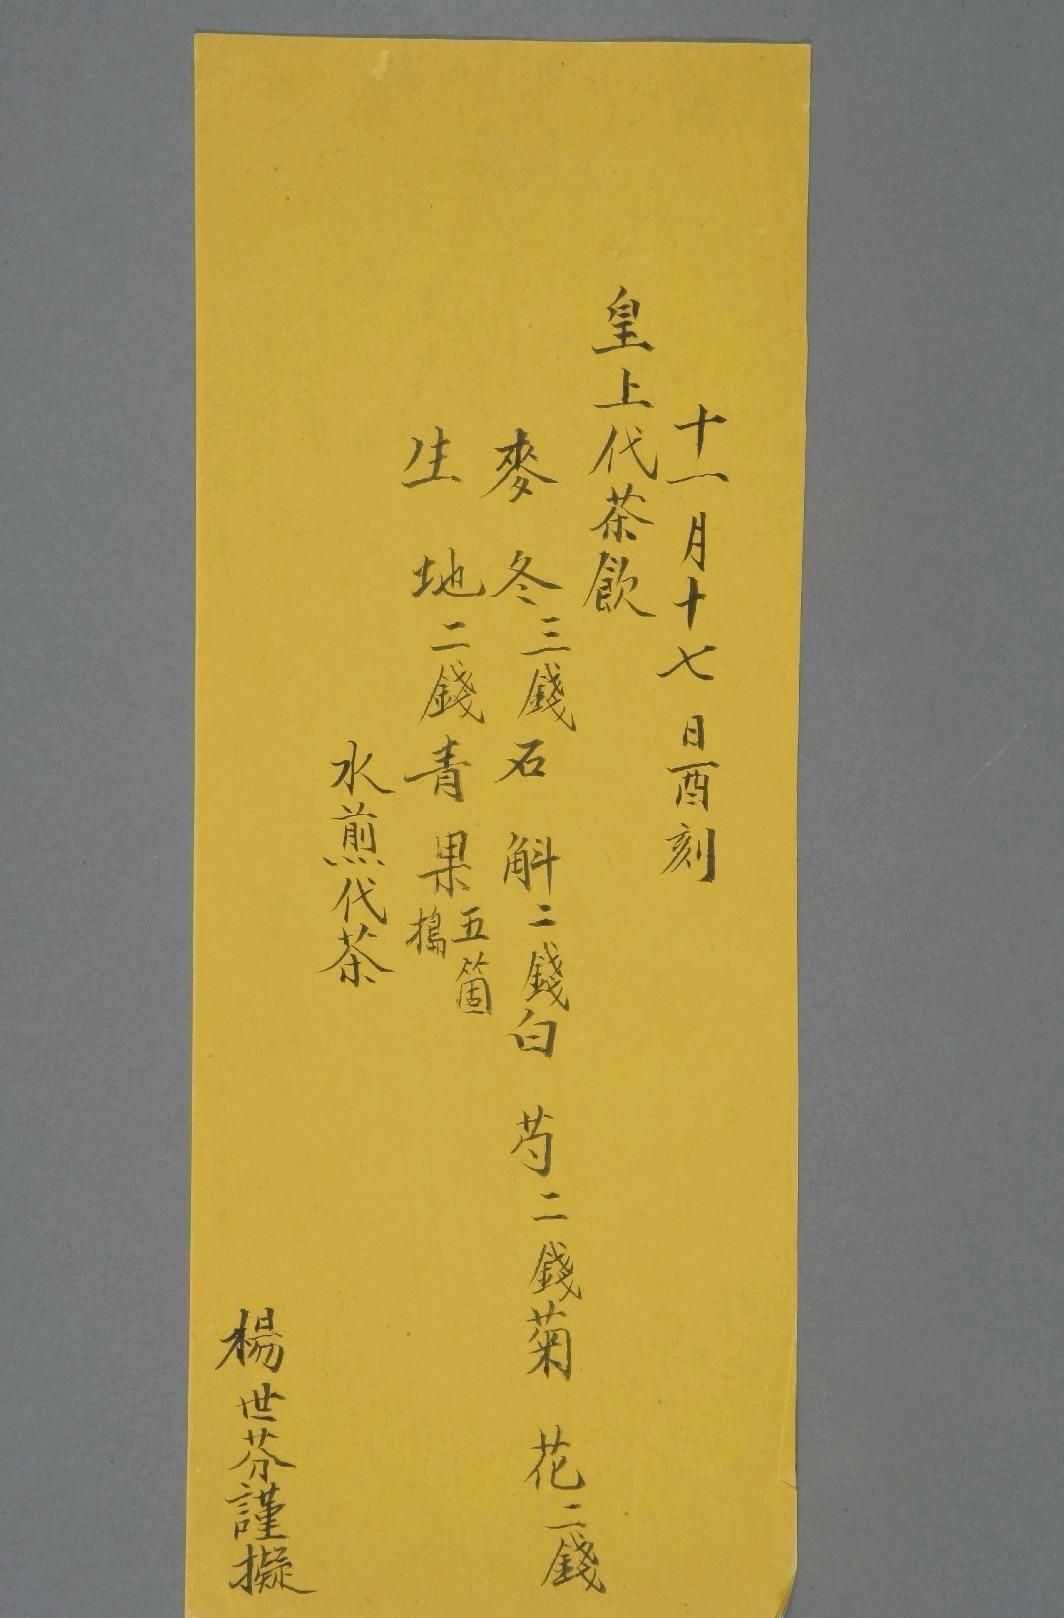 十一月十七日酉刻
皇上代茶飲
麥冬三錢石斛二錢白芍二錢菊花二錢
生地二錢青果五箇搗
水煎代茶
楊世芬謹擬